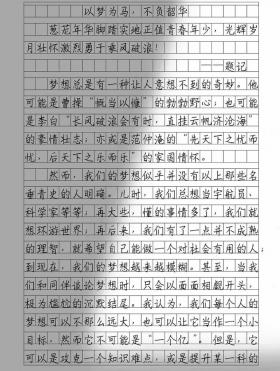 以梦为马,不负韶华
葱花年华脚踏实地正值青春年少,光辉岁
月壮怀激烈勇于乘风破浪!
——题记
梦想总是有一种让人意想不到的奇妙。他
可能是曹操“慨当以慷”的勃勃野心;也可能
是李白“长风破浪会有时,直挂云帆济沧海”
的豪情壮志;亦或是范仲淹的“先天下之忧而
忧,后天下之乐而乐”的家国情怀。
然而,我们的梦想似乎并没有以上那些名
垂青史的人明确。儿时,我们总想当宇航员,
科学家等等,再大些,懂的事情多了,我们就
想环游世界;再后来,我们有了一点并不成熟
的理智,就希望自己能做一个对社会有用的人,
到现在,我们的梦想越来越模糊。甚至,当我
们和同伴谈论梦想时,只会以面面相觑开头,
极为尴尬的沉默结尾。我认为,我们每个人的
梦想可以不那么远大,也可以让它当作一个小
目标,然而它不可能是“一个亿”。但是,它
可以是攻克一个知识难点,或是提升某一科的